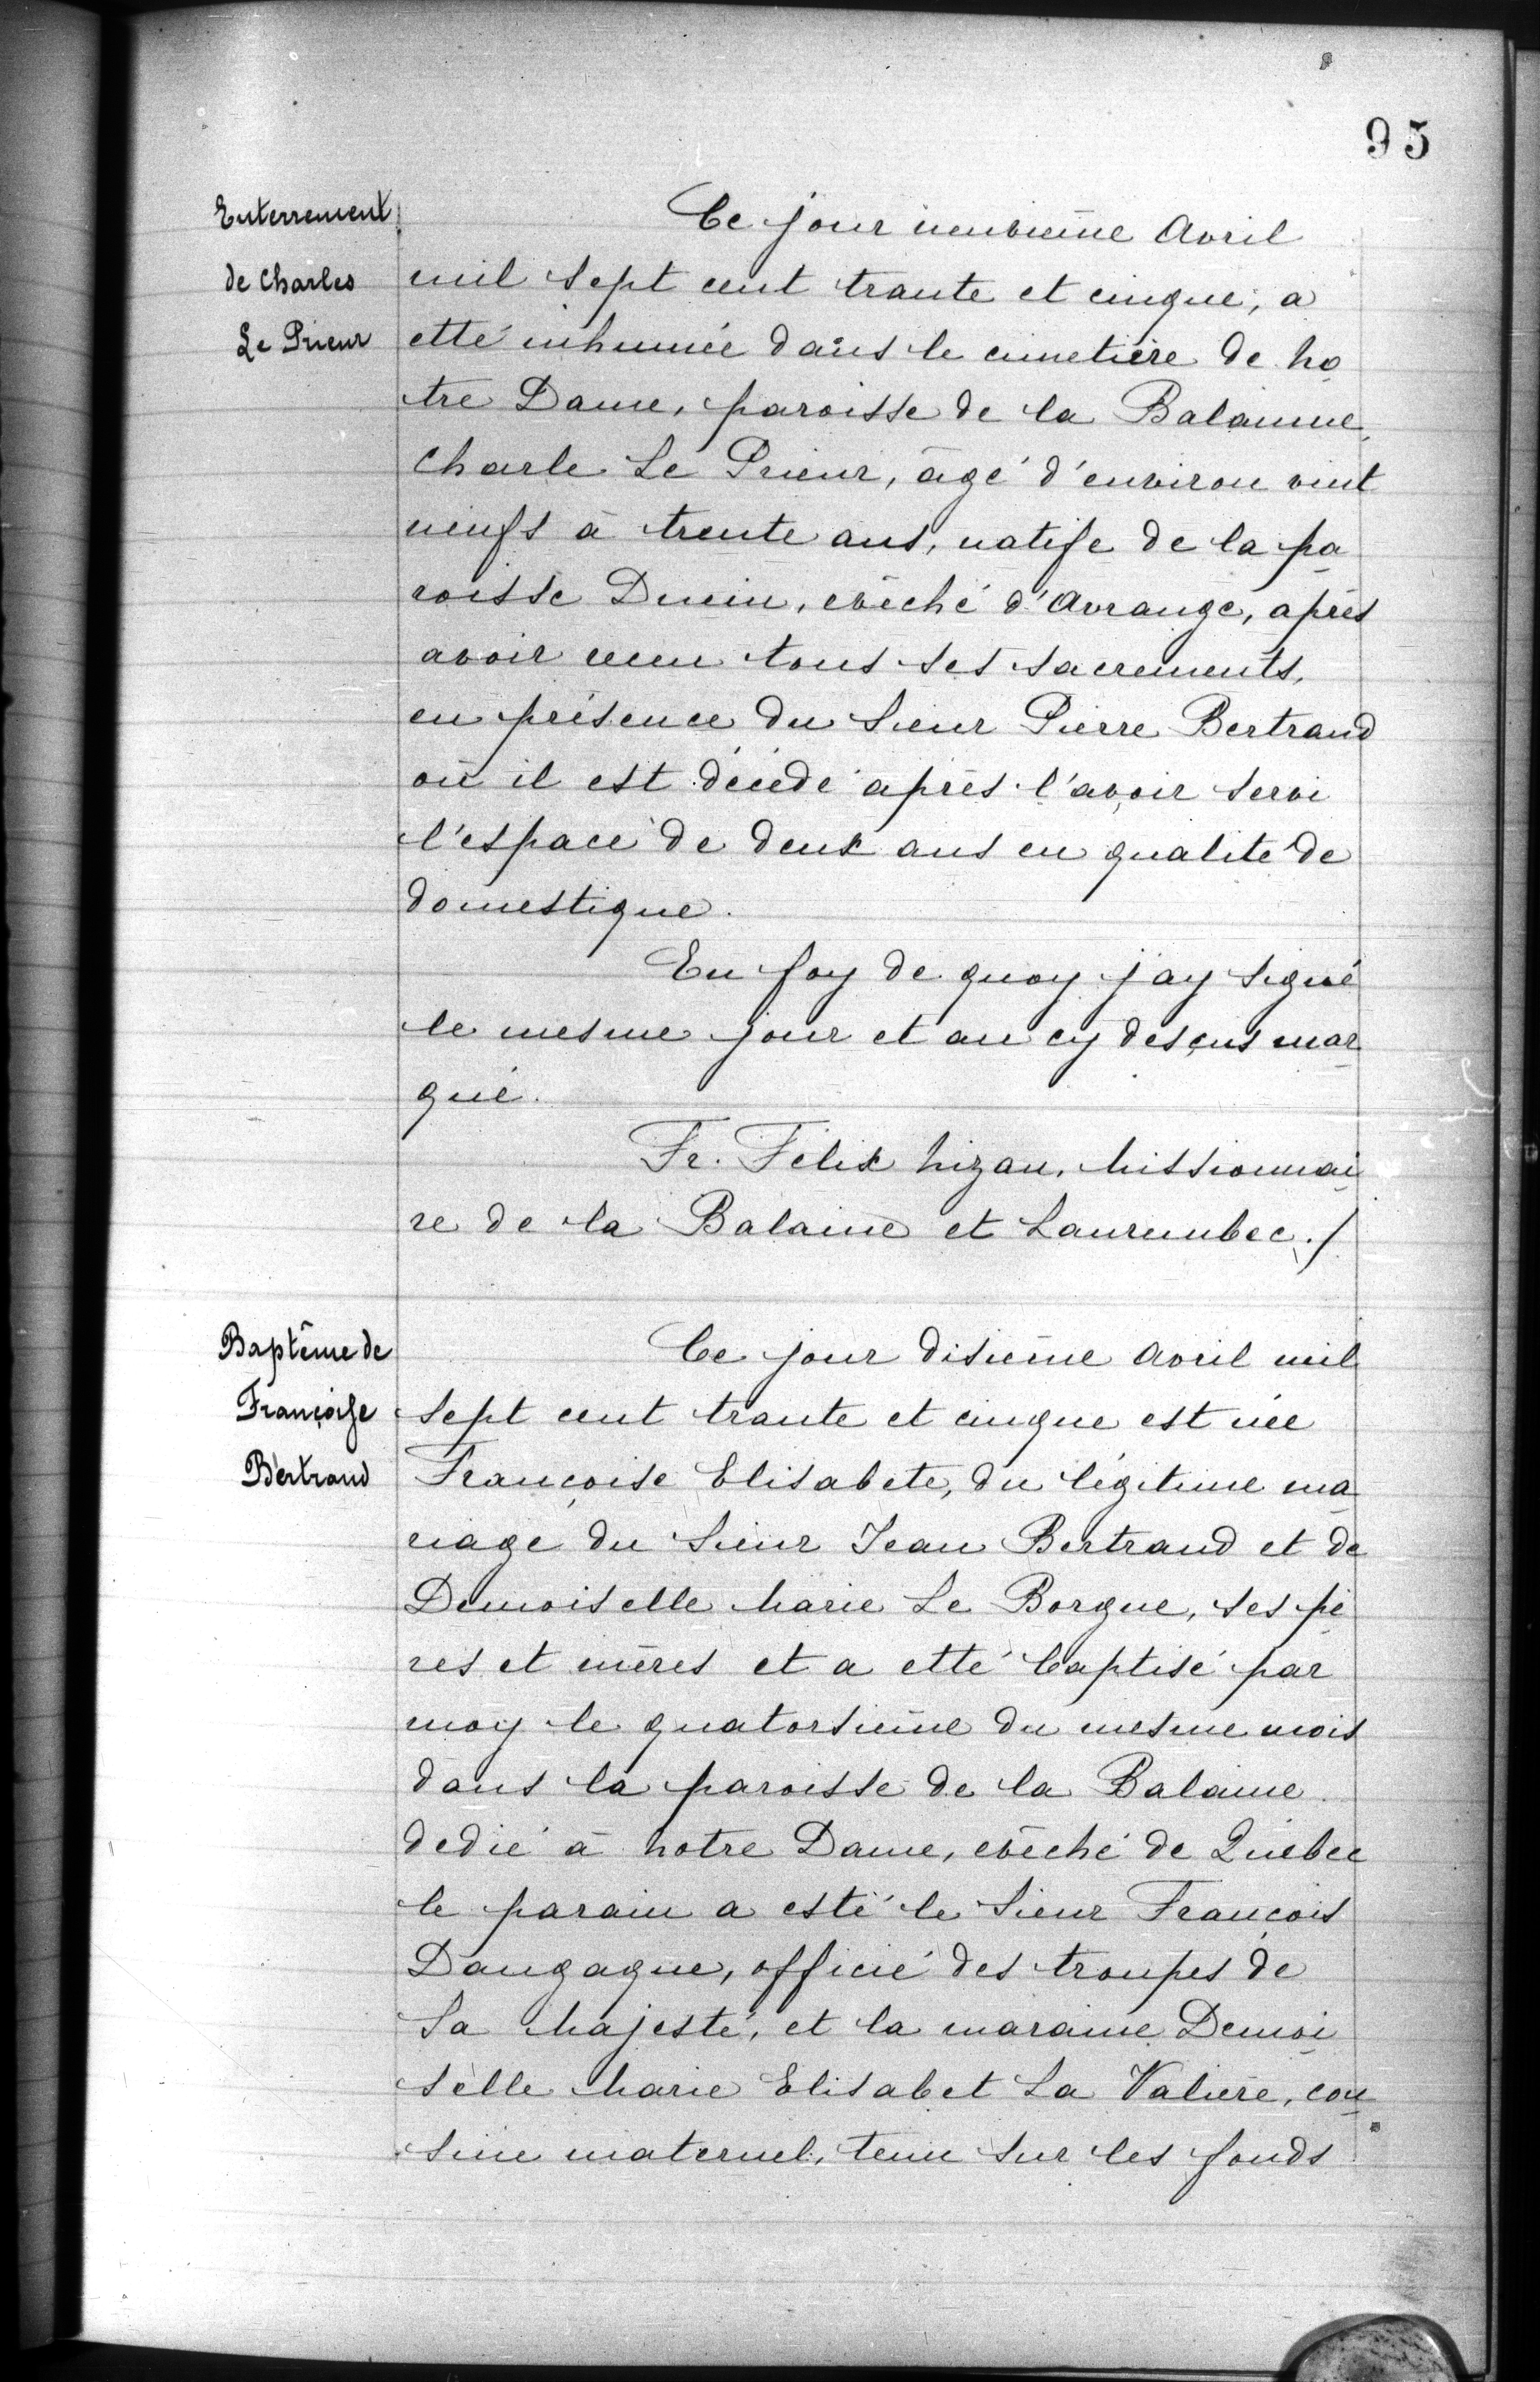 95
Enterrement
de Charles
Le Prieur
Ce jour neuvième Avril
mil sept cent trante et cinque, a
etté inhumée dans le cimetière de No
tre Dame, paroisse de la Balainne,
Charle Le Prieur, âgé d'environ vint
neufs à trente ans, natife de la pa
roisse Ducin, evêché d'Avrange, après
avoir recu tous ses sacrements,
en présence du Sieur Pierre Bertrand
où il est décédé après l'avoir servi
l'espace de deux ans en qualité de
domestique.
En foy de quoy jay signé
le mesme jour et an cy desçus mar
qué.
Fr. Félix Nizan, Missionnai
re de la Balaine et Laurembec./
Baptême de
Françoise
Bertrand
Ce jour disième Avril mil
sept cent trante et cinque est née
Françoise Elisabete, du légitime ma
riage du Sieur Jean Bertrand et de
Demoiselle Marie Le Borgne, ses pè
res et mères et a etté baptisé par
moy le quatorsième du mesme mois
dans la paroisse de la Balaine
dedié à Notre Dame, evêché de Québec
le parain a esté le Sieur François
Dangagne, officié des troupes de
Sa Majesté, et la maraine Demoi
selle Marie Elisabet La Valière, cou
sine maternel, tenu sur les fonds